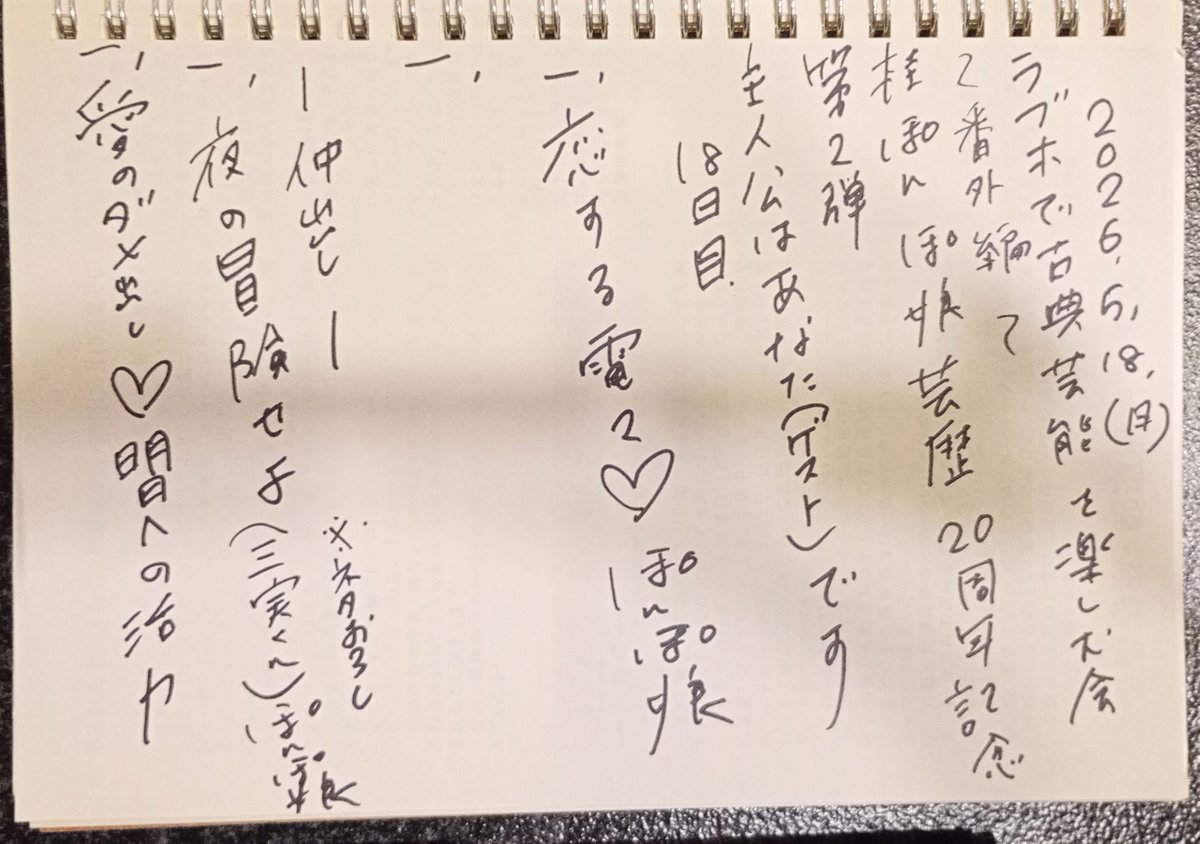 2026.5.18.(月)
ラブホで古典芸能を楽しむ会
て番外編て
桂ぽんぽ娘芸歴20周年記念
第2弾
主人公はあなた(ゲスト)です
18日目.
一、恋する電マ♡ ぽんぽ娘
一、
ー仲出しー
※ネタおろし
一、夜の冒険せよ(三実くん)ぽんぽ娘
一、愛のダメ出し♡明日への活力